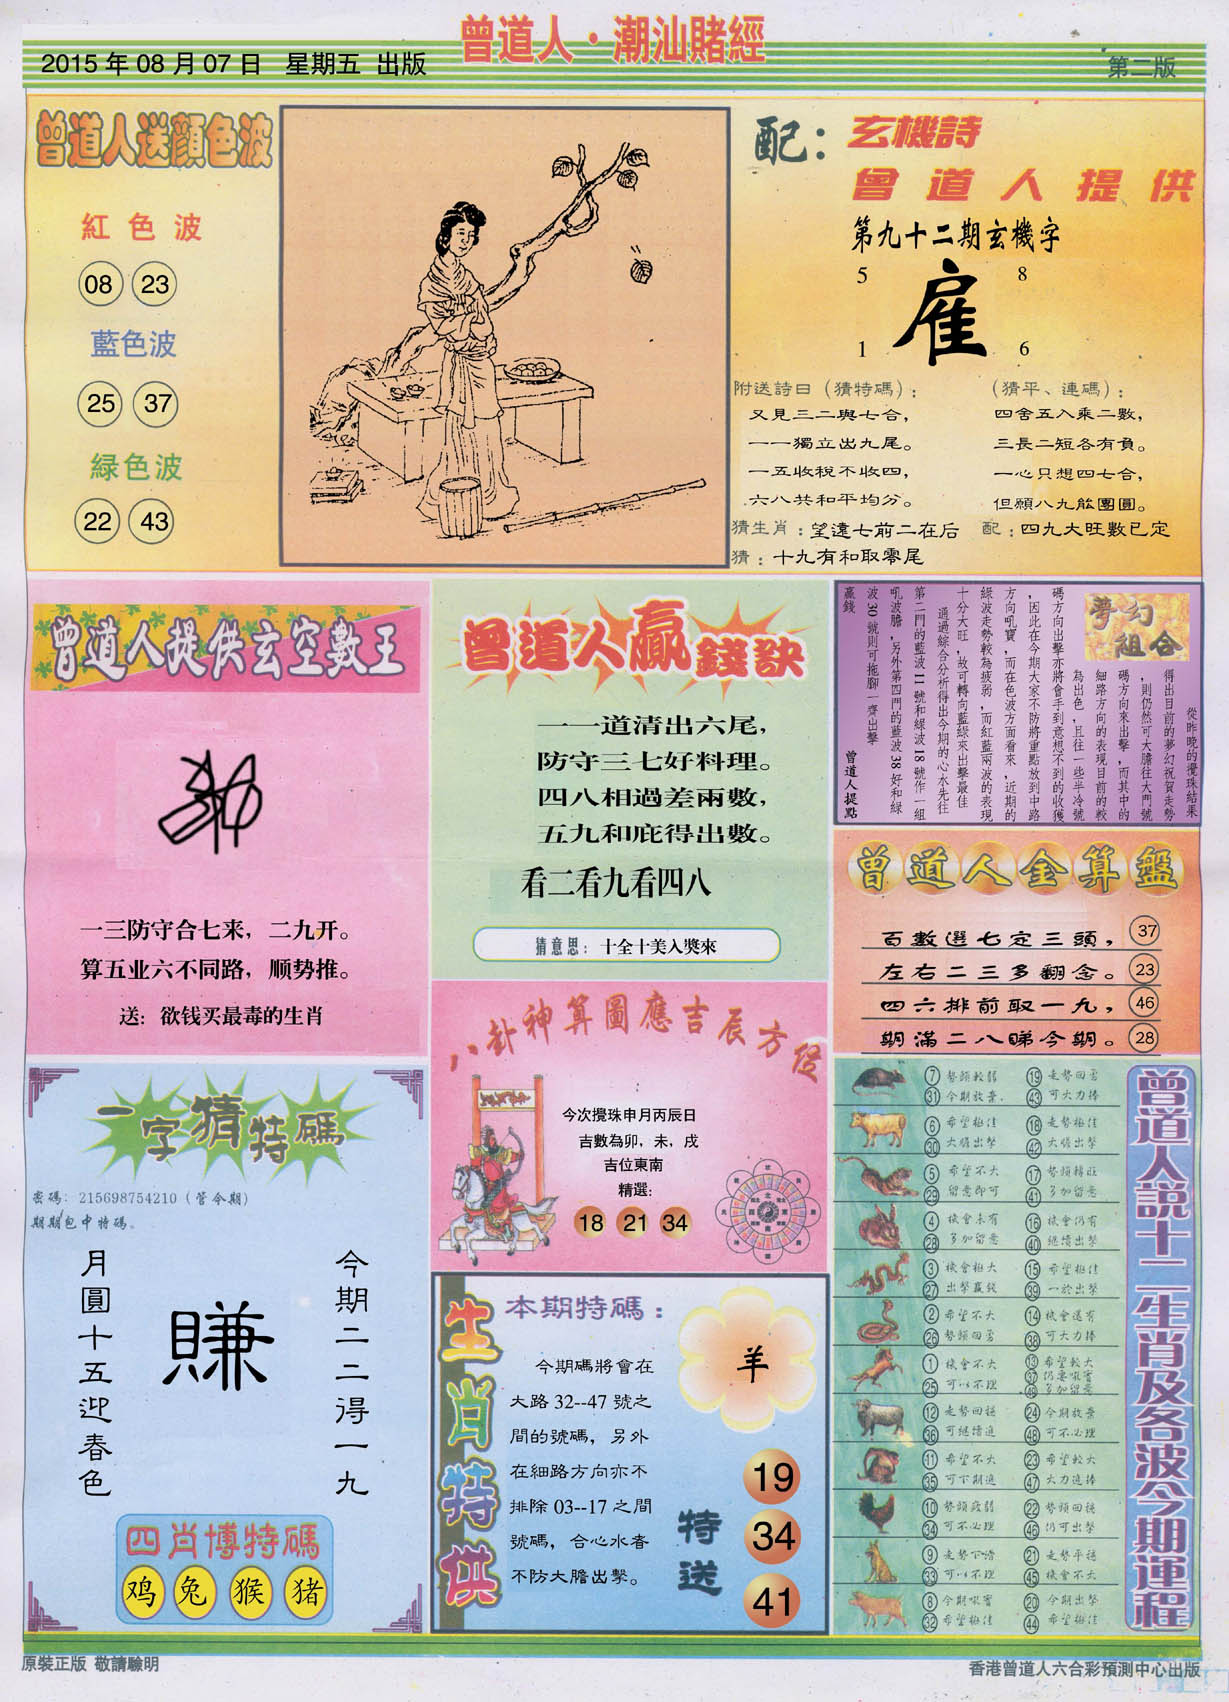 曾道人·潮汕賭經
2015 年 08 月 07 日 星期五 出版
第二版
曾道人送顏色波
紅色波
08 23
藍色波
25 37
緑色波
22 43
配：玄機詩
曾道人提供
第九十二期玄機字
5 8
雇
1 6
附送詩曰（猜特碼）：
又見三二與七合，
一一獨立出九尾。
一五收稅不收四，
六八共和平均分。
（猜平、連碼）：
四舍五入乘二數，
三長二短各有負。
一心只想四七合，
但願八九能團圓。
猜生肖：望遠七前二在后
配：四九大旺數已定
猜：十九有和取零尾
曾道人提供玄空數王
一三防守合七来，二九开。
算五业六不同路，顺势推。
送：欲钱买最毒的生肖
曾道人贏錢訣
一一道清出六尾，
防守三七好料理。
四八相過差兩數，
五九和庇得出數。
看二看九看四八
猜意思：十全十美入獎來
夢幻組合
從昨晚的攪珠結果
得出目前的夢幻祝賀走勢
，則仍然可大膽往大門號
碼方向來出擊，而其中的
細路方向的表現目前的較
為出色，且往一些半冷號
碼方向出擊亦將會手到意想不到的收獲
，因此在今期大家不防將重點放到中路
方向吼寶，而在色波方面看來，近期的
綠波走勢較為疲弱，而紅藍兩波的表現
十分大旺，故可轉向藍綠來出擊最佳
通過綜合分析得出今期的心水先往
第二門的藍波 11 號和綠波 18 號作一組
吼波膽，另外第四門的藍波 38 好和綠
波 30 號則可拖腳一齊出擊
贏錢
曾道人提點
曾道人金算盤
百數選七定三頭， 37
左右二三多翻念。 23
四六排前取一九， 46
期滿二八睇今期。 28
一字猜特碼
密碼：215698754210（管今期）
期期包中特碼。
今期二二得一九
賺
月圓十五迎春色
四肖博特碼
鸡 兔 猴 猪
八卦神算圖應吉辰方位
今次攪珠申月丙辰日
吉數為卯，未，戌
吉位東南
精選：
18 21 34
生肖特供
本期特碼：
今期碼將會在
大路 32--47 號之
間的號碼，另外
在細路方向亦不
排除 03--17 之間
號碼，合心水者
不防大膽出擊。
羊
特送
19
34
41
曾道人說十二生肖及各波今期運程
7 勢頭較弱 19 走勢回勇
31 今期放棄． 43 可大力捧
6 希望極佳 18 走勢極佳
30 大膽出擊 42 大膽出擊
5 希望不大 17 勢頭轉旺
29 留意即可 41 多加留意
4 機會未有 16 機會仍有
28 多加留意 40 繼續出擊
3 機會極大 15 希望極佳
27 出擊贏錢 39 一於出擊
2 希望不大 14 機會還有
26 勢頭回勇 38 可大力捧
1 機會不大 13 希望較大
25 可以不理 37 仍要吸寶
49 多加留意
12 走勢回穩 24 今期放棄
36 可繼續追 48 可不必理
11 希望不大 23 希望較大
35 可下期追 47 大力追捧
10 勢頭疲弱 22 勢頭回穩
34 可不必理 46 仍可出擊
9 走勢下滑 21 走勢平穩
33 可以不理 45 機會不大
8 今期吸寶 20 今期出擊
32 希望極佳 44 希望極佳
原裝正版 敬請驗明
香港曾道人六合彩預測中心出版